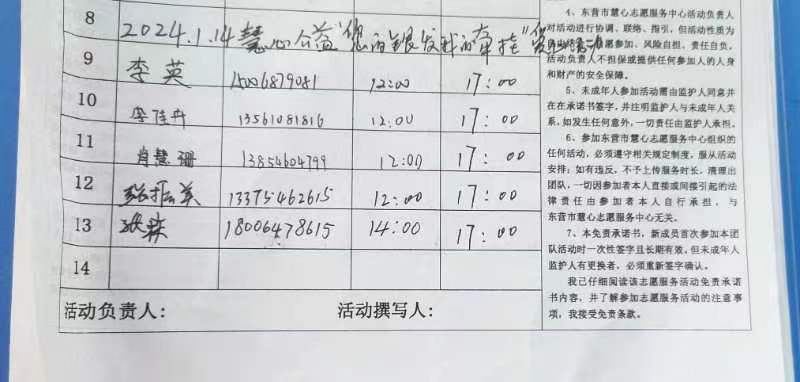 8 2024.1.14 慧心公益"您的银发我的牵挂"
9 李英 15006879081 12:00 17:00
10 李佳卉 13561081816 12:00 17:00
11 肖慧珊 13854604799 12:00 17:00
12 张振英 13375462615 12:00 17:00
13 张森 18006478615 14:00 17:00
14
活动负责人： 活动撰写人：
4、东营市慧心志愿服务中心活动负责人
对活动进行协调、联络、指引，但活动性质为
参加、风险自担、责任自负。
活动负责人不担保或提供任何参加人的人身
和财产的安全保障。
5、未成年人参加活动需由监护人同意并
在在承诺书签字，并注明监护人与未成年人关
系。如发生任何意外，一切责任由监护人承担。
6、参加东营市慧心志愿服务中心组织的
任何活动，必须遵守相关规定制度，服从活动
安排；如有违反，不予上传服务时长，清理出
团队，一切因参加者本人直接或间接引起的法
律责任由参加者本人自行承担，与
东营市慧心志愿服务中心无关。
7、本免责承诺书，新成员首次参加本团
队活动时一次性签字且长期有效。但未成年人
监护人有更换者，必须重新签字确认。
我已仔细阅读该志愿服务活动免责承诺
书内容，并了解参加志愿服务活动的注意事
项，我接受免责条款。